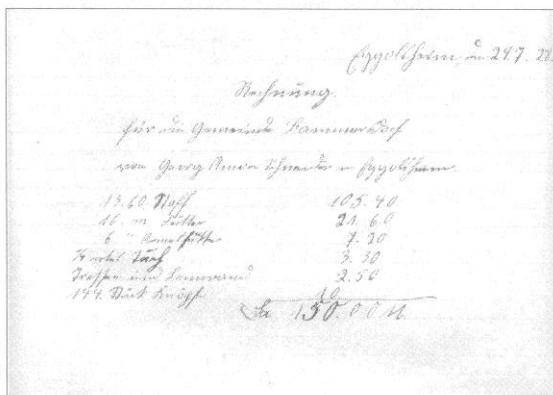 Eggolsheim, d 24.7. 28.
Rechnung
für die Gemeinde Bammersdorf
von Georg Schneider in Eggolsheim.
13.60. Stoff 105.40
16. m Futter 21.60
6 " Ärmelfutter 7.20
Tuch 3.30
und Leinwand 2.50
144. Stück Knöpf 10
Sa 150.00 M